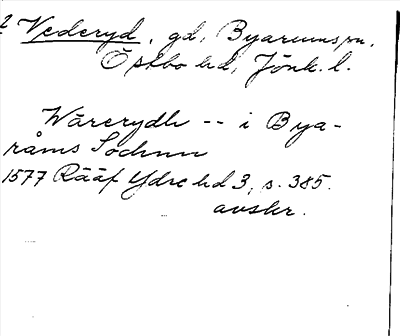 2 Vederyd, gd, Byarums sn,
Östbo hd, Jönk. l.
Wärerydh -- i Bya-
råms Sochnn
1577 Rääf Ydre hd 3, s. 385.
avskr.